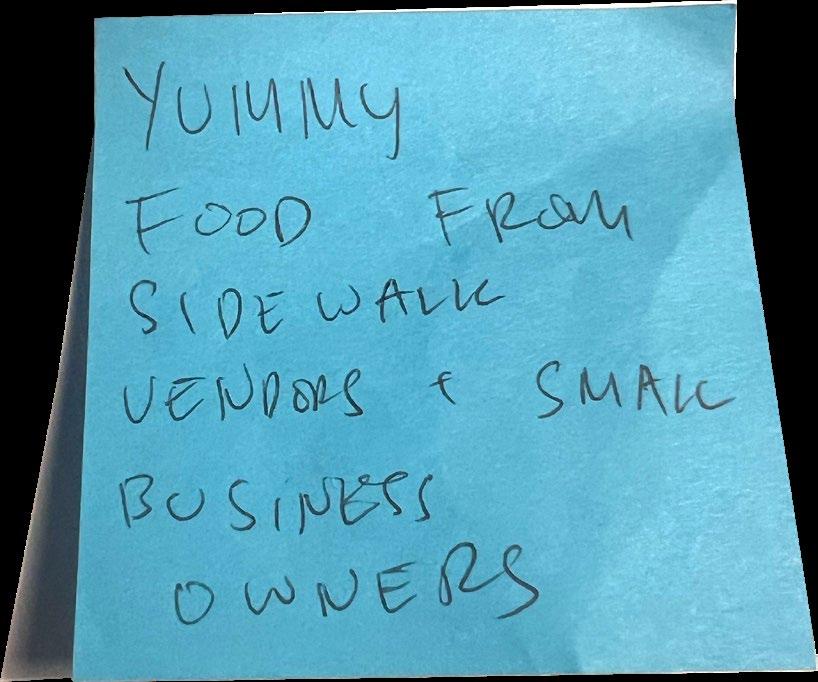 YUMMY
FOOD FROM
SIDEWALK
VENDORS + SMALL
BUSINESS
OWNERS